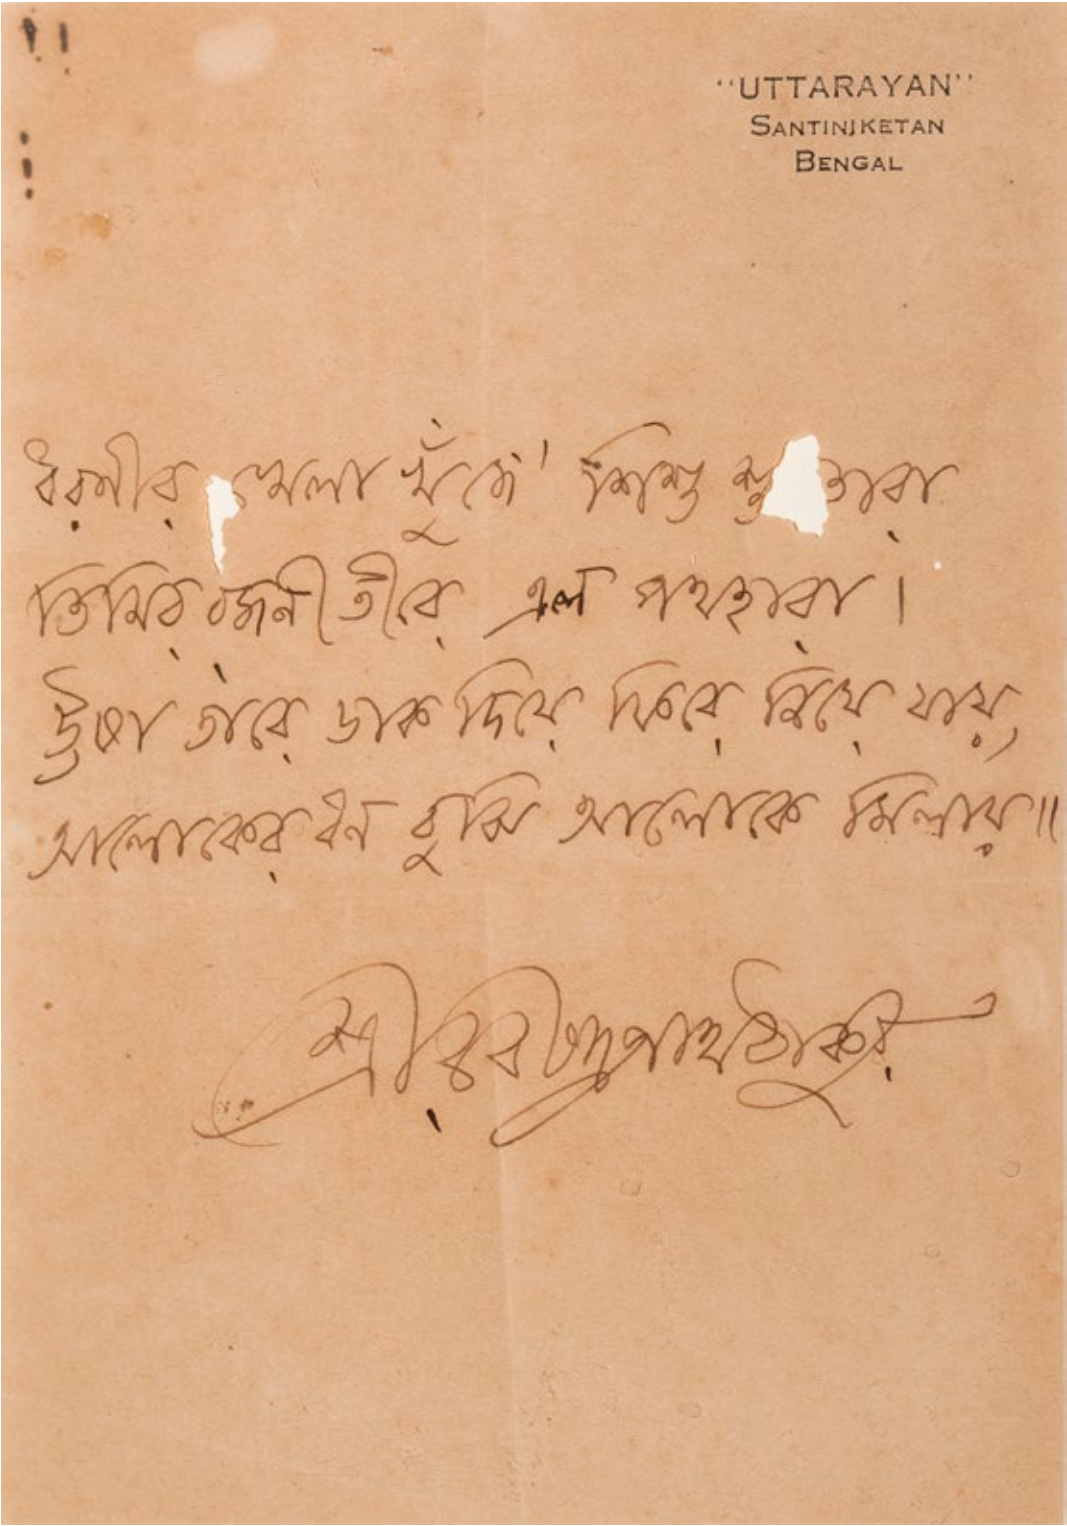 "UTTARAYAN"
SANTINIKETAN
BENGAL
ধরণীর খেলা খুঁজে' শিশু শু তারা
তিমির রজনী তীরে এল পথহারা।
উষা তারে ডাক দিয়ে ফিরে নিয়ে যায়,
আলোকের ধন বুঝি আলোকে মিলায়॥
শ্রীরবীন্দ্রনাথ ঠাকুর